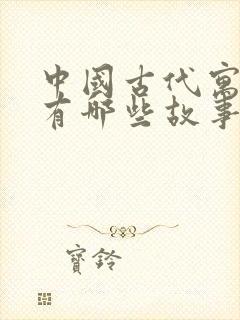 中國古代寓
有哪些故事
寶鈴